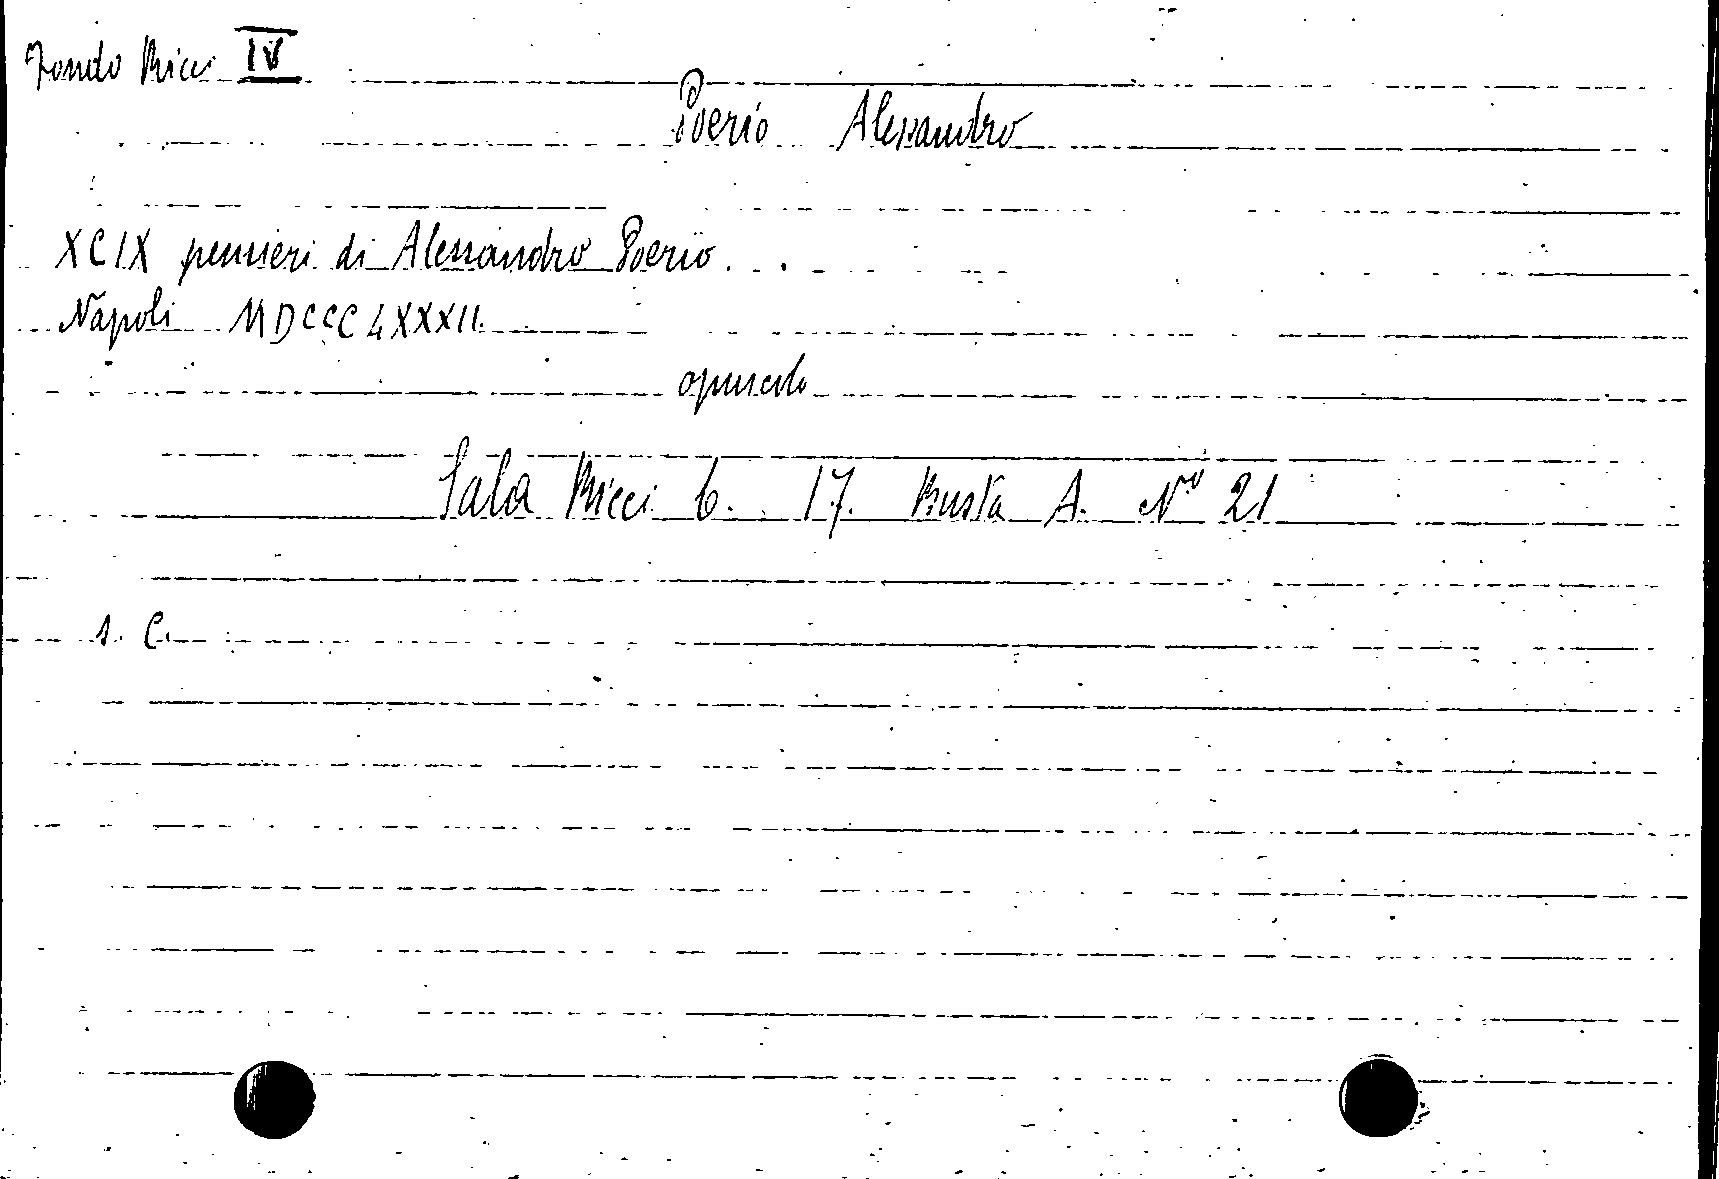 Fondo Ricci IV
Poerio Alessandro
XCIX pensieri di Alessandro Poerio. . .
Napoli MDCCCLXXXII.
opuscolo
Sala Ricci 6. 17. Busta A. N° 21
s. C.